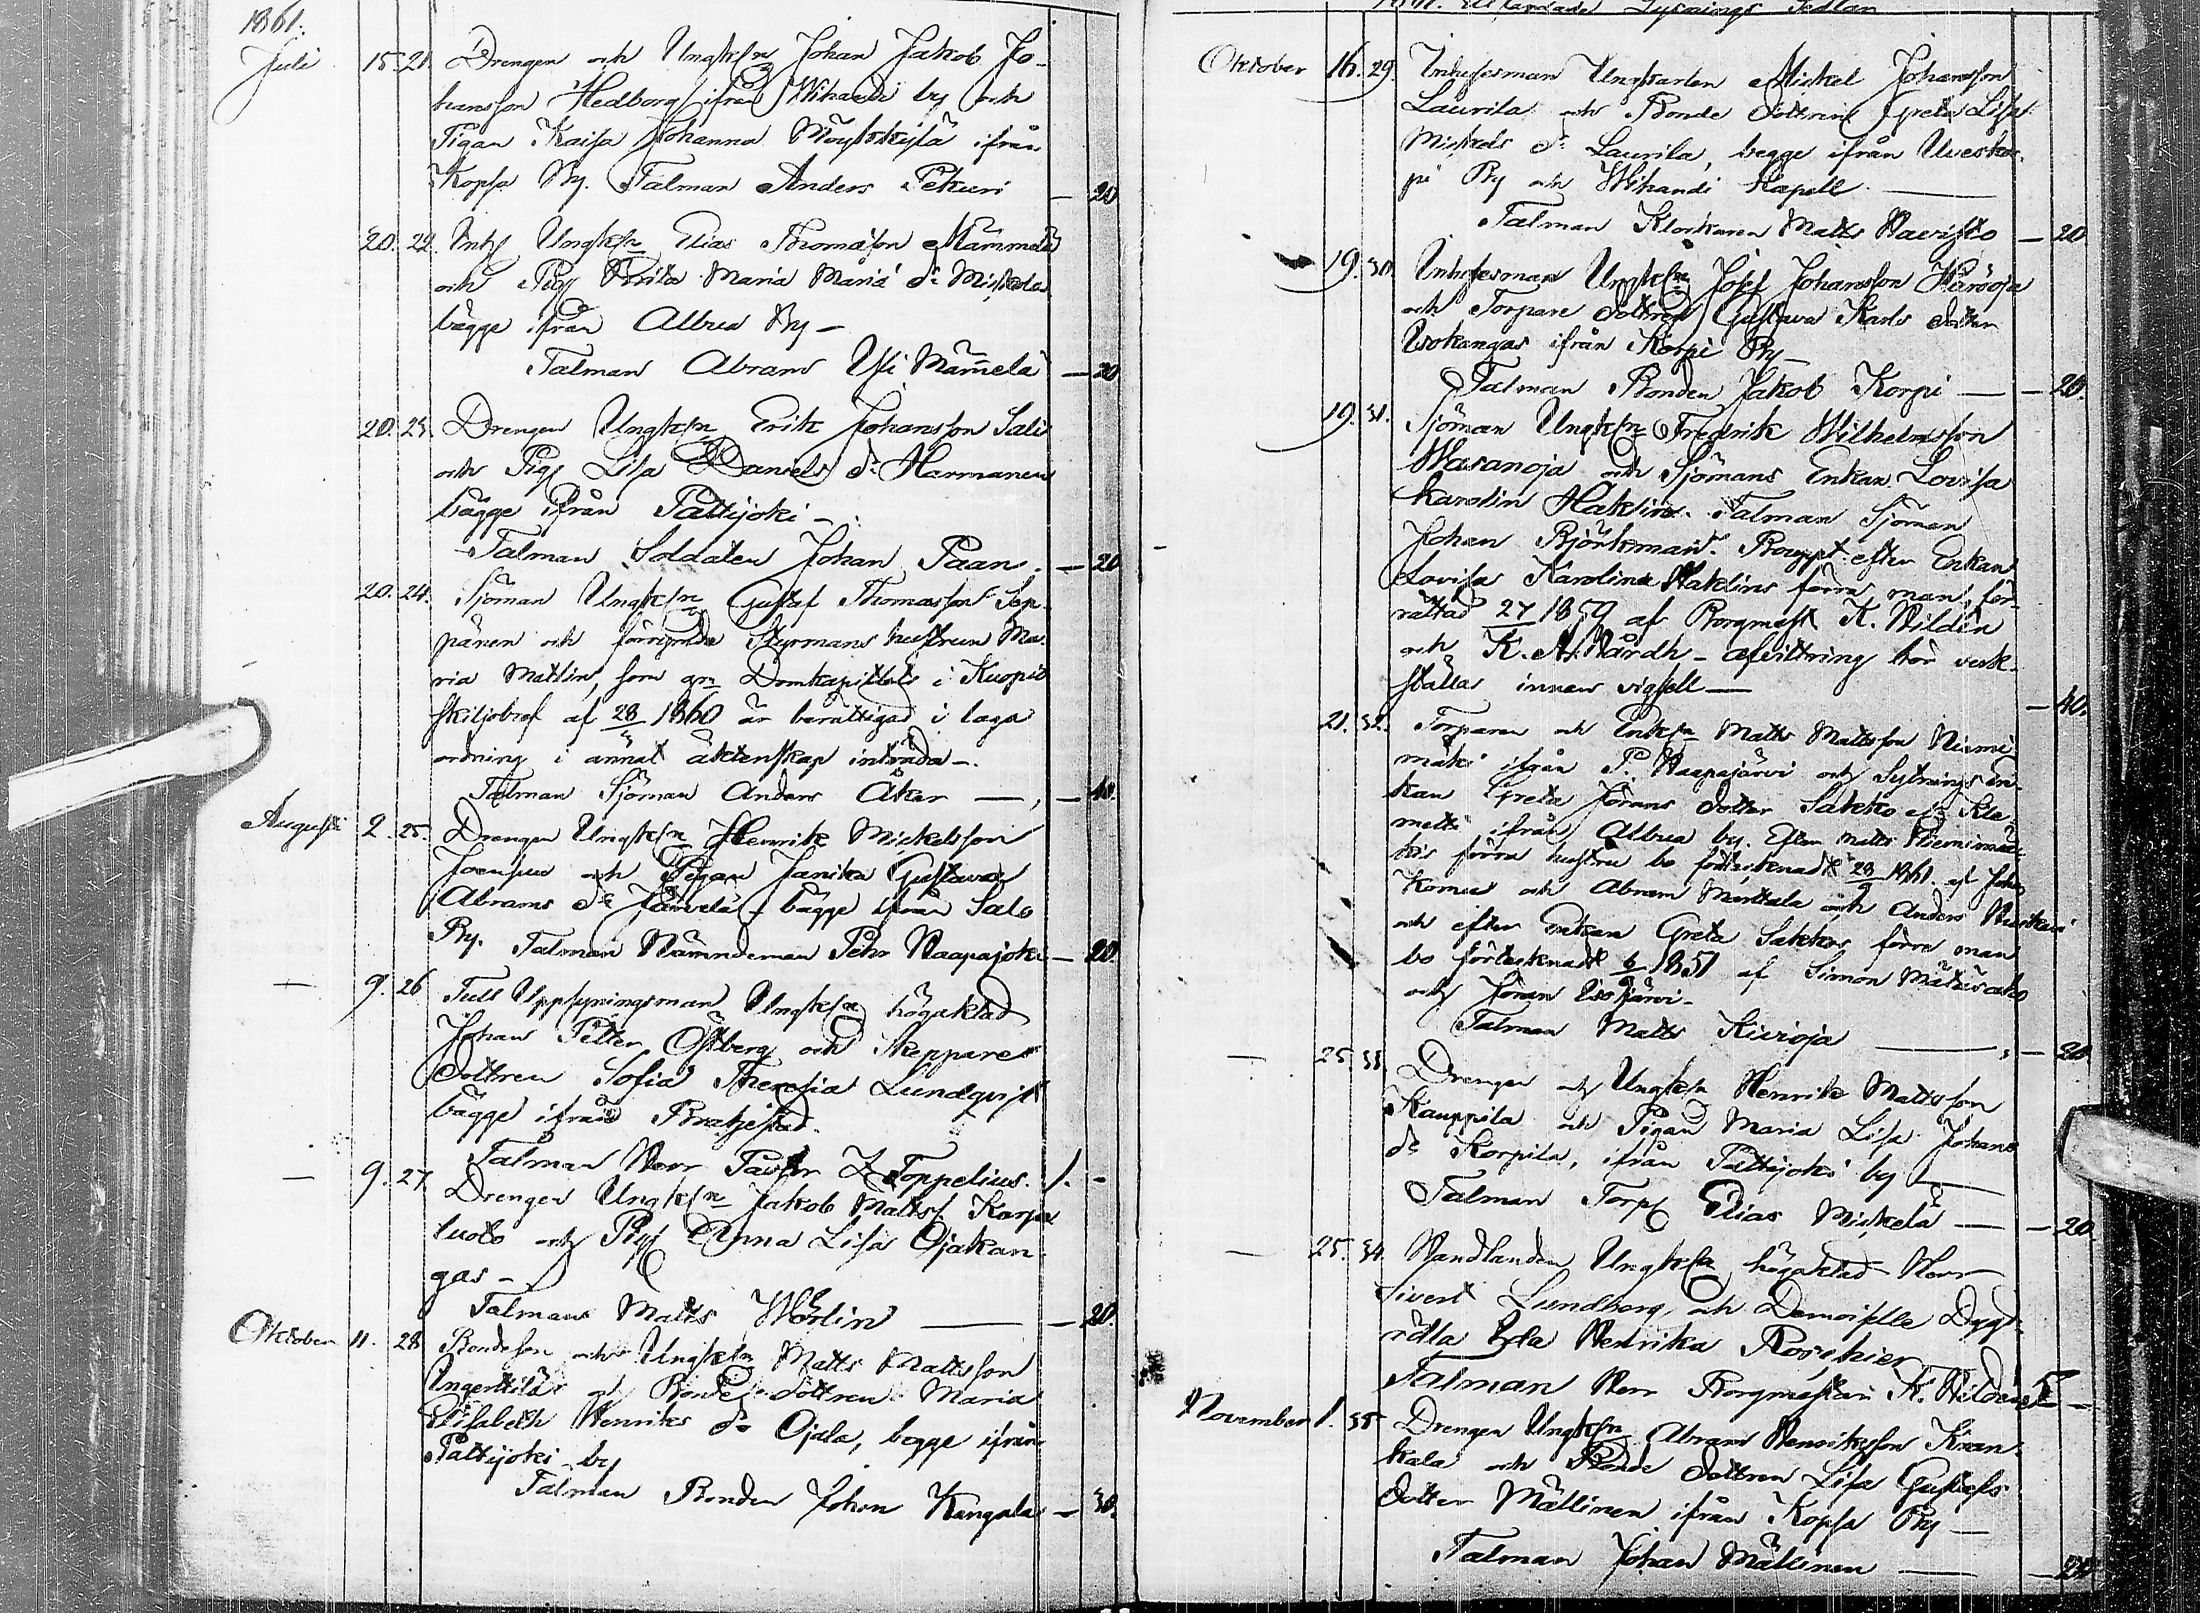 1861.
Juli 15. 21. Drengen och Ungk/n Johan Jakob Jo-
hansson Hedborg ifrån Wihandi by och
Pigan Kaisa Johanna ifrån
Kopsa By. Talman Anders Pekuri — 20
20. 22. Inh/ Ungk/n Elias Thomasson Mämmelä
och Pig/ Brita Maria Maria d:r Mickela
bägge ifrån Albua By —
Talman Abram Yli Mämelä — 20
20. 23. Drengen Ungk/n Erik Johansson Sali
och Pig/ Lisa Daniels d:r Harmanen
bägge ifrån Pattijoki —.
Talman Soldaten Johan Paan. — 20
20. 24. Sjöman Ungk/n Gustaf Thomasson Sep-
pänen och förrymde Styrmans hustrun Ma-
ria Matlin, som gm Domkapitlets i Kuopio
skiljobref af 28 1860 är berättigad i laga
ordning i annat äktenskap inträda —.
Talman Sjöman Anders Åker —, — 40.
Augusti 2. 25. Drengen Ungk/n Henrik Mickelsson
Joensuu och Pigan Janika Gustava
Abrams d:r Järvelä — bägge ifrån Salo
By. Talman Nämndeman Pehr Haapajoki — 20
— 9. 26 Tull Uppsyningsman Ungk/n högaktad
Johan Petter Östberg och Skeppare
dottren Sofia Theresia Lundqvist
bägge ifrån Brahestad.
Talman Herr Pastor Z. Toppelius. 1. -
— 9. 27 Drengen Ungk/n Jakob Matts/ Karja
luoto och Pig/ Anna Lisa Ojakan-
gas —
Talman Matts Wörlin — — 20.
Oktober 11. 28 Bondeson och Ungk/n Matts Mattsson
Ungerttilä och Bonde dottren Maria
Elisabeth Henriks d:r Ojala, begge ifrån
Pattijoki by
Talman Bonden Johan Kangala — 30.
1861. Utfärdade Lysnings Sedlan
Oktober 16. 29. Inhysesman Ungkarlen Mickel Johansson
Laurila och Bonde dottren Greta Lisa
Mickels d:r Laurila, begge ifrån Uveskor-
pi By och Wihandi Kapell. —
Talman Klockaren Matts Navisto — 20
19. 30. Inhysesman Ungk/n Josef Johansson Häröoja
och Torpare dottren Gustava Karls dotter
Isokangas ifrån Korpi By —
Talman Bonden Jakob Korpi — — 20.
19. 31. Sjöman Ungk/n Fredrik Wilhelmsson
Wasanoja och Sjömans Enkan Lovisa
Karolin Haklin. Talman Sjöman
Johan Björkman. Bouppt. efter Enkan
Lovisas Karolina Haklins förra man, för-
rättad 27 1859 af Borgmäst K. Wildén
och K. A. Wårdh — afvittring bör verk-
ställas innan vigsell — — 40.
21. 32. Torparen och Enk/n Matts Mattsson Niemi-
mäki ifrån P. Haapajärvi och Sytnings en-
kan Greta Jörans dotter Sakko el:r Kle-
metti ifrån Albua by. Efter Matts Niemimä-
kis förra hustru bo förteknadt 28 1861. af Joh.
Komu och Abram Mattala och Anders
och efter Enkan Greta Sakkos förra man
bo förtecknadt 6 1851 af Simon
och Jöran Isojärvi —
Talman Matts Kivioja — — 20.
— 25. 33. Drengen och Ungk/n Henrik Mattsson
Kauppila och Pigan Maria Lisa Johans
d:r Korpila, ifrån Pattijoki by —
Talman Torp/ Elias Mickelä — — 20
— 25. 34. Handlanden Ungk/n högaktad Herr
Sivert Lundberg, och Demoiselle Dygd-
rölla Eda Henrika Roschier
Talman Herr Borgmästare K. Wildén —
November 1. 35. Drengen Ungk/n Abram Henriksson Kran-
kala och Bonde dottren Lisa Gustafs
dotter Mällinen ifrån Kopsa By —
Talman Johan Mällinen — — 20